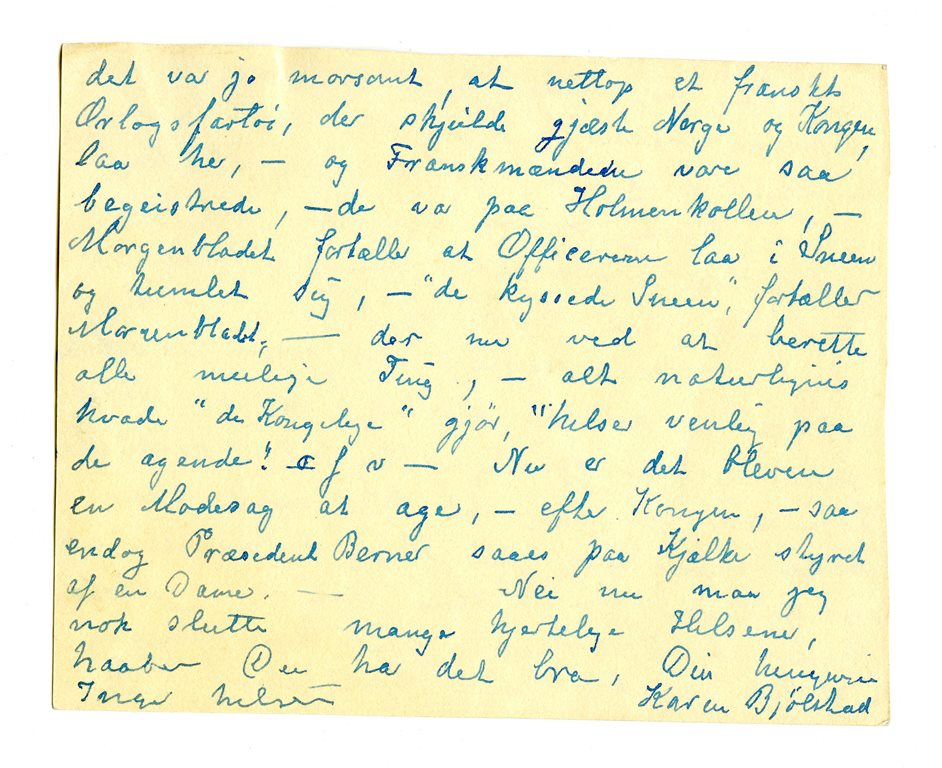 det var jo morsomt, at nettop et franskt
Orlogsfartöi, der skjulde gjæste Norge og Kongen,
laa her, – og Franskmændene vare saa
begeistrede, – de va paa Holmenkollen, –
Morgenbladet fortæller at Officererne laa i Sneen
og tumlet sig, – "de kyssede Sneen", fortæller
Morgenbladet, — der nu ved at berette
alle mulige Ting, – alt naturligvis
hvade "de Kongelige" gjør, "hilser venlig paa
de agende" o f v — Nu er det bleven
en Modesag at age, – efter Kongen, – saa
endog Præsedent Berner saaes paa Kjælke styret
af en Dame. — Nei nu maa jeg
nok slutte mange hjertelige Hilsener,
haaber Du har det bra, Din hengivne
Inger hilser Karen Bjølstad